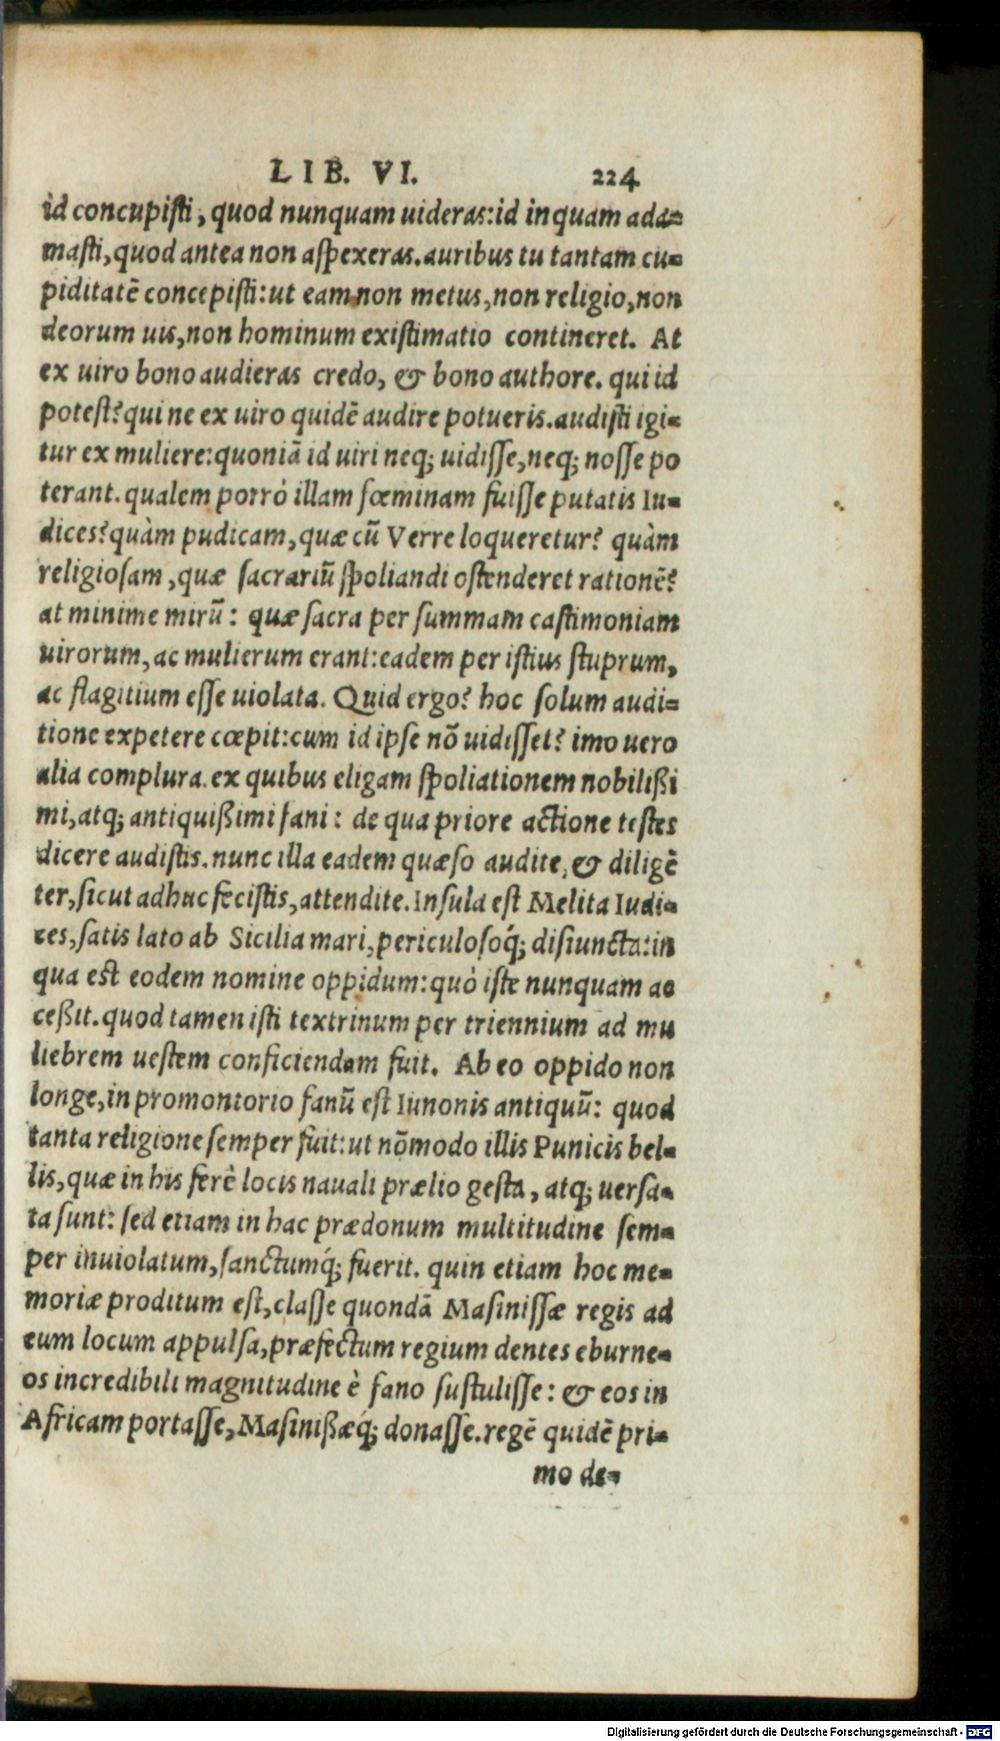 LIB. VI. 224
id concupisti, quod nunquam uideras:id inquam ada-
masti,quod antea non aspexeras.auribus tu tantam cu-
piditatē concepisti:ut eam non metus,non religio,non
deorum uis,non hominum existimatio contineret. At
ex uiro bono audieras credo, & bono authore. qui id
potest?qui ne ex uiro quidē audire potueris.audisti igi-
tur ex muliere:quoniā id uiri neq; uidisse,neq; nosse po
terant. qualem porrò illam fœminam fuisse putatis Iu-
dices?quàm pudicam,quæ cū Verre loqueretur? quàm
religiosam,quæ sacrariū spoliandi ostenderet rationē?
at minime mirū: quæ sacra per summam castimoniam
uirorum,ac mulierum erant:eadem per istius stuprum,
ac flagitium esse uiolata. Quid ergo? hoc solum audi-
tione expetere cœpit:cum id ipse nō uidisset? imo uero
alia complura. ex quibus eligam spoliationem nobilißi
mi,atq; antiquißimi fani: de qua priore actione testes
dicere audistis.nunc illa eadem quæso audite,& diligē
ter,sicut adhuc fecistis,attendite.Insula est Melita Iudi-
ces,satis lato ab Sicilia mari,periculosoq́; disiuncta:in
qua est eodem nomine oppidum:quò iste nunquam ac
ceßit.quod tamen isti textrinum per triennium ad mu
liebrem uestem conficiendam fuit. Ab eo oppido non
longe,in promontorio fanū est Iunonis antiquū: quod
tanta religione semper fuit:ut nōmodo illis Punicis bel-
lis,quæ in his ferè locis nauali prælio gesta, atq; uersa-
ta sunt: sed etiam in hac prædonum multitudine sem-
per inuiolatum,sanctumq́; fuerit. quin etiam hoc me-
moriæ proditum est,classe quondā Masinissæ regis ad
eum locum appulsa,præfectum regium dentes eburne-
os incredibili magnitudine è fano sustulisse: & eos in
Africam portasse,Masinißæq́; donasse.regē quidē pri-
mo de-
Digitalisierung gefördert durch die Deutsche Forschungsgemeinschaft - DFG